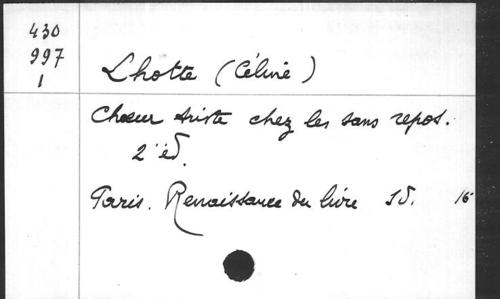 430
997
1
Lhotte (Céline)
Chœur triste chez les sans repos.
2e éd.
Paris. Renaissance du livre S.d. 16